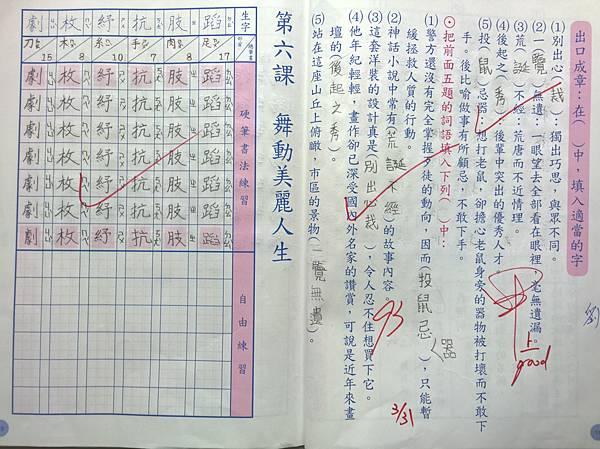 出口成章：在（ ）中，填入適當的字
(1)別出心（裁）：獨出巧思，與眾不同。
(2)一（覽）無遺：一眼望去全部看在眼裡，毫無遺漏。
(3)荒（誕）不經：荒唐而不近情理。
(4)後起之（秀）：後輩中突出的優秀人才。
(5)投（鼠）忌器：想打老鼠，卻擔心老鼠身旁的器物被打壞而不敢下
手。後比喻做事有所顧忌，不敢下手。
⊙把前面五題的詞語填入下列（ ）中：
(1)警方還沒有完全掌握歹徒的動向，因而（投鼠忌器），只能暫
緩拯救人質的行動。
(2)神話小說中常有（荒誕不經）的故事內容。
(3)這套洋裝的設計真是（別出心裁），令人忍不住想買下它。
(4)他年紀輕輕，畫作卻已深受國內外名家的讚賞，可說是近年來畫
壇的（後起之秀）。
(5)站在這座山丘上俯瞰，市區的景物（一覽無遺）。
上
good
3/31
第六課 舞動美麗人生
生字
硬筆書法練習
自由練習
蹈 足 17 蹈 蹈 蹈 蹈 蹈 蹈 蹈
肢 肉 8 肢 肢 肢 肢 肢 肢 肢
抗 手 7 抗 抗 抗 抗 抗 抗 抗
紓 糸 10 紓 紓 紓 紓 紓 紓 紓
枚 木 8 枚 枚 枚 枚 枚 枚 枚
劇 刀 15 劇 劇 劇 劇 劇 劇 劇